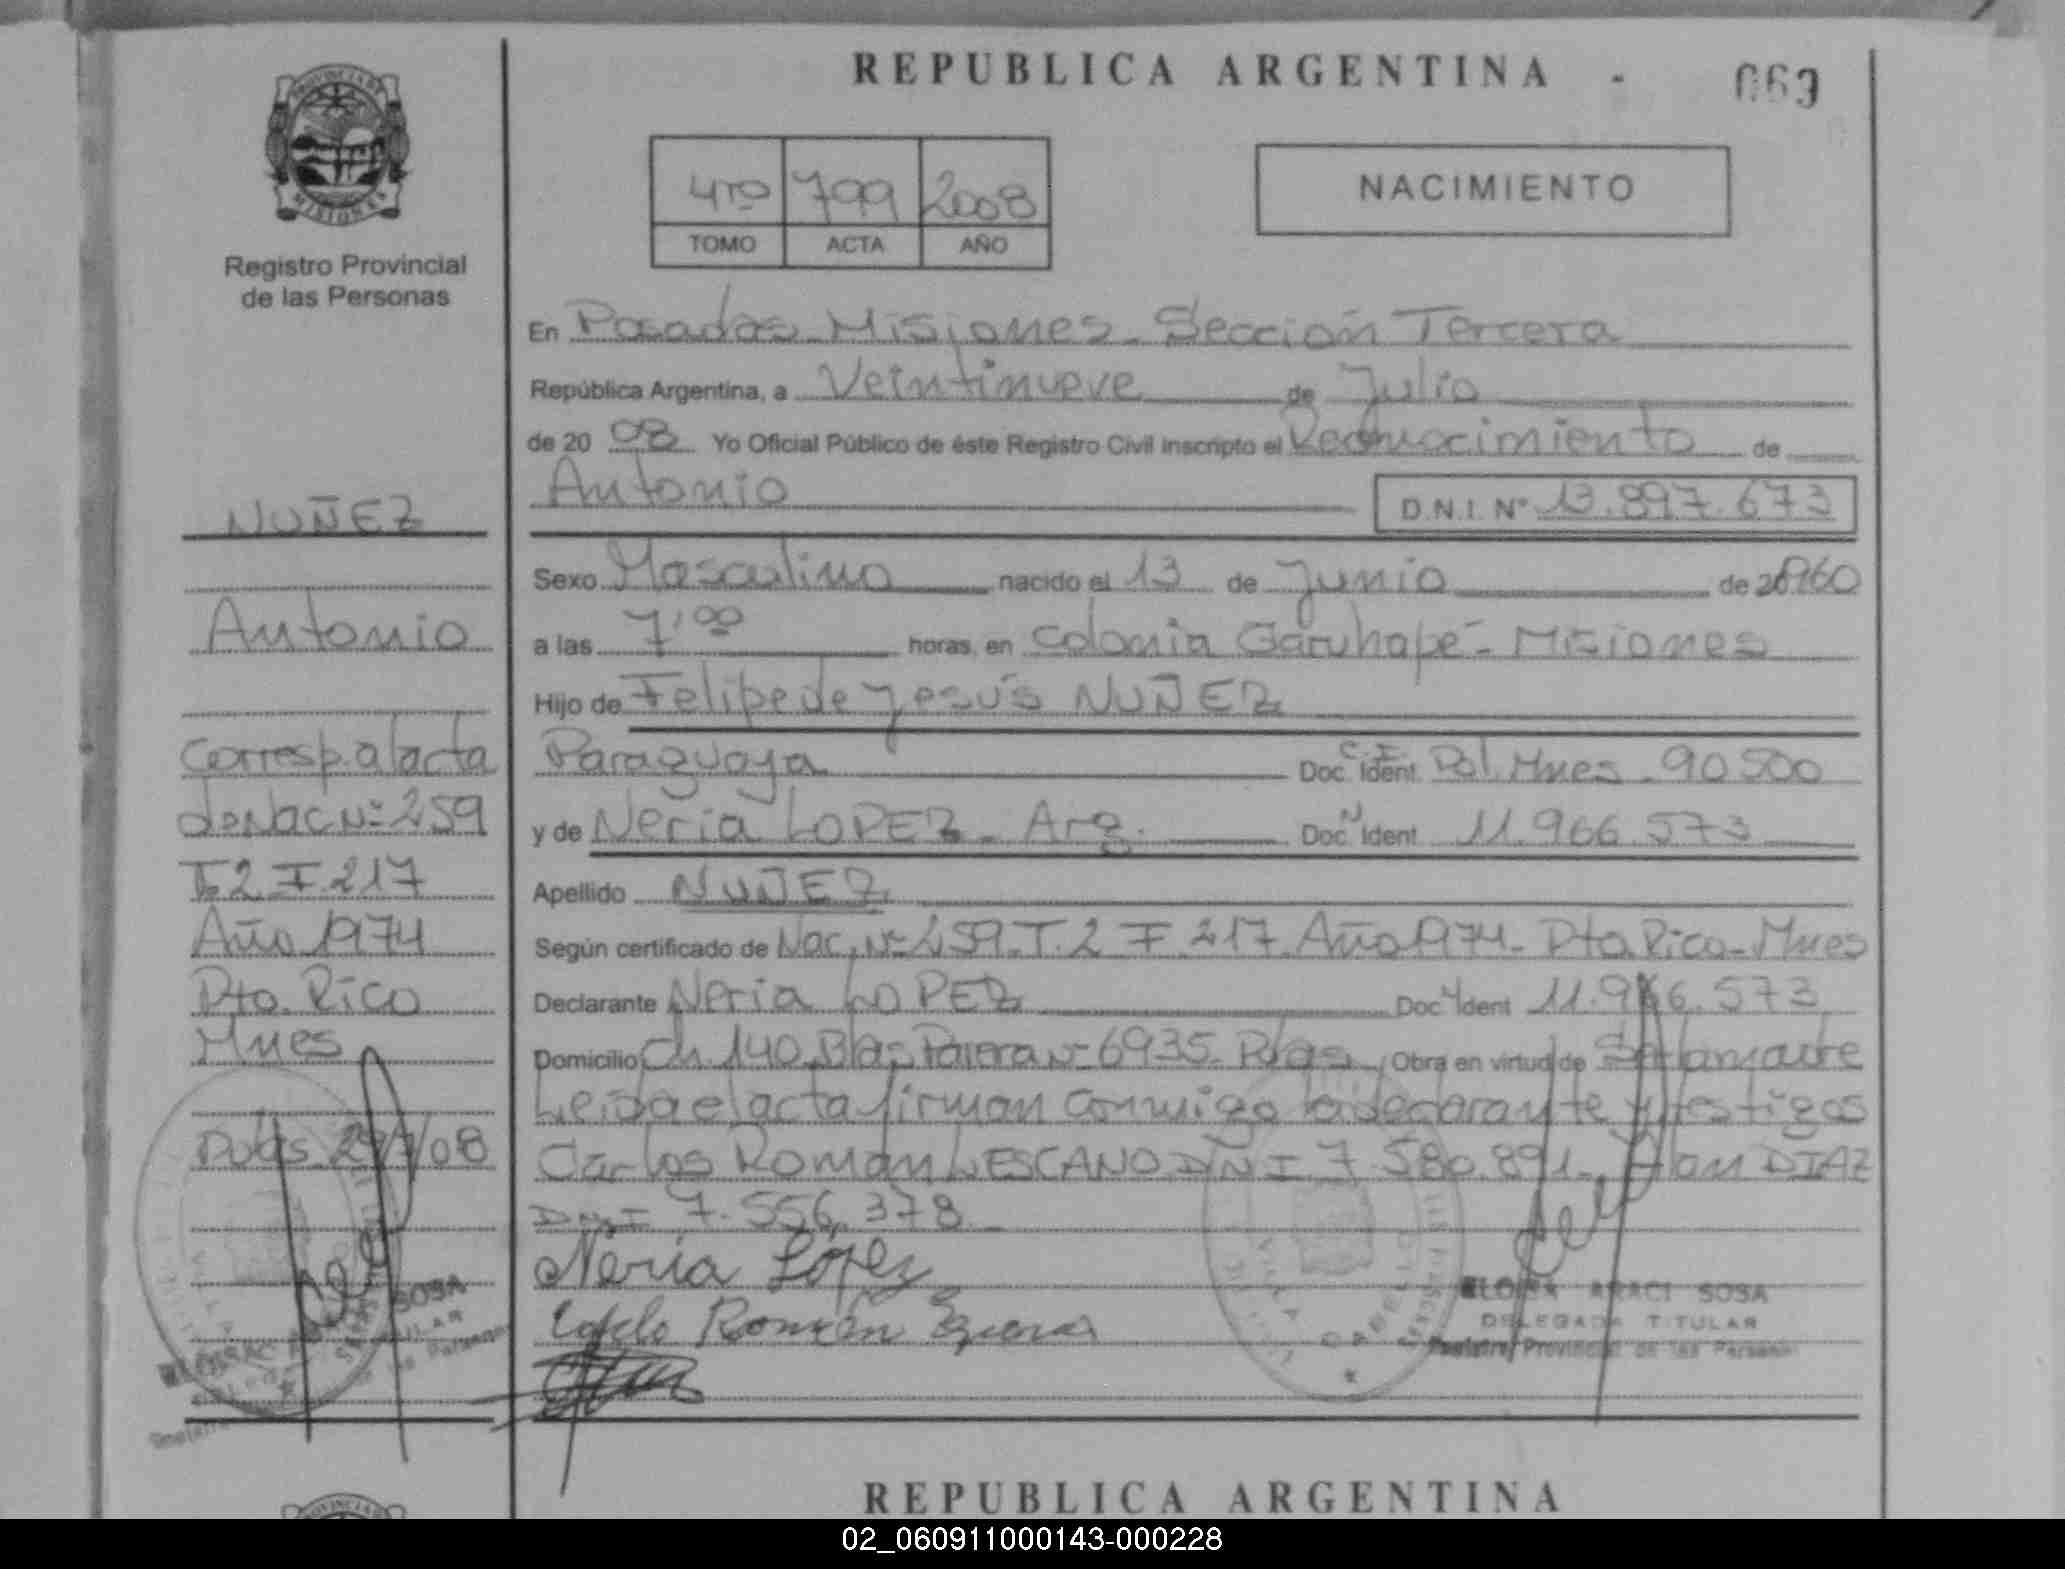 REPUBLICA ARGENTINA - 069
PROVINCIA DE
MISIONES
Registro Provincial
de las Personas
4to 799 2008
TOMO ACTA AÑO
NACIMIENTO
En Posadas Misiones - Sección Tercera
República Argentina, a Veintinueve de Julio
de 20 08 Yo Oficial Público de éste Registro Civil inscripto el Reconocimiento de
Antonio D.N.I. Nº 13.897.673
Sexo Masculino nacido el 13 de Junio de 1960
a las 7,00 horas, en Colonia Garuhapé - Misiones
Hijo de Felipe de Jesús NUÑEZ
Paraguaya Doc. C.I. Ident. Pol. Mnes - 90500
y de Neria LOPEZ - Arg. Doc. Ident 11.966.573
Apellido NUÑEZ
Según certificado de Nac. Nº 259 - T. 2 F. 217 Año 1974 - Pto. Rico - Mnes
Declarante Neria LOPEZ Doc Ident 11.966.573
Domicilio Ch. 140 Blas Parera Nº 6935 - Pdas Obra en virtud de Ser la madre
Leída el acta firman conmigo la declarante y testigos
Carlos Roman LESCANO DNI 7.580.891 - DIAZ
DNI 7.556.378
Neria López
Roman
ELOISA ARACI SOSA
DELEGADA TITULAR
Registro Provincial de las Personas
NUÑEZ
Antonio
Corresp. al acta
de Nac Nº 259
T. 2 F. 217
Año 1974
Pto. Rico
Mnes
Pdas 29/7/08
SOSA
REPUBLICA ARGENTINA
02_060911000143-000228